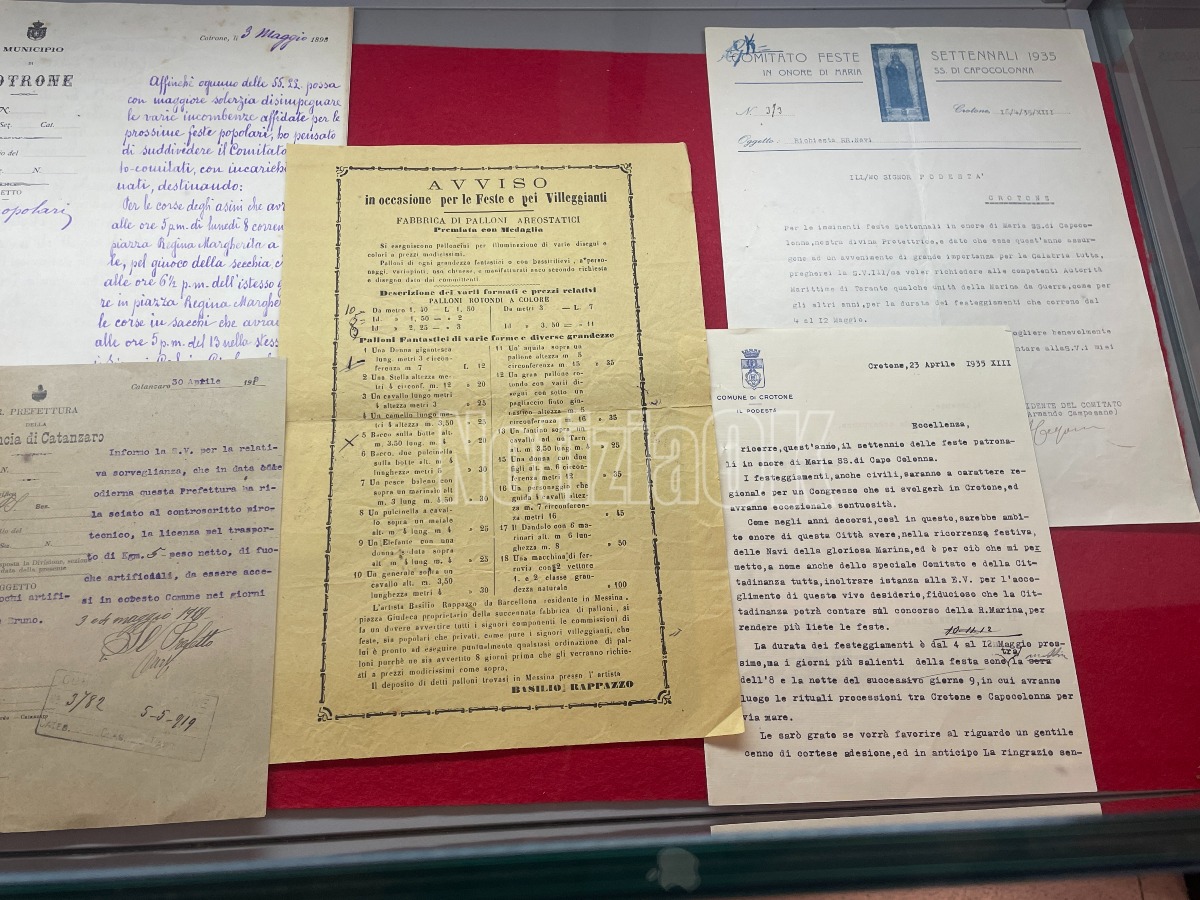 MUNICIPIO
DI
COTRONE
Cotrone, li 3 Maggio 189
Affinchè ognuno delle SS. LL. possa
con maggiore solerzia disimpegnare
le varie incombenze affidate per le
prossime feste popolari, ho pensato
di suddividere il Comitato
to-comitati, con incarichi
nati, destinando:
Per le corse degli asini che avr
alle ore 5 p.m. di lunedì 8 corren
piazza Regina Margherita a
le, pel giuoco della secchia, c
alle ore 6½ p.m. dell'istesso g
re in piazza Regina Margher
le corse in sacchi che avra
alle ore 5 p.m. del 13 nella stess
Set. Cat.
N.
ETTO
opolari
PREFETTURA
DELLA
ncia di Catanzaro
Catanzaro 30 Aprile 191
Informo la S.V. per la relati-
va sorveglianza, che in data
odierna questa Prefettura ha ri-
lasciato al controscritto piro-
tecnico, la licenza pel traspor-
to di Kgm. 5 peso netto, di fuo-
chi artificiali, da essere acce-
si in codesto Comune nei giorni
3 e 4 maggio 1919
Il Prefetto
OGGETTO
ochi artifi-
Bruno.
3782
5-5-919
AVVISO
in occasione per le Feste e pei Villeggianti
FABBRICA DI PALLONI AREOSTATICI
Premiata con Medaglia
Si eseguiscono palloncini per illuminazione di varie disegni e
colori a prezzi modicissimi.
Palloni di ogni grandezza fantastici o con bassirilievi, a personaggi,
variopinti, uso chinese, e manifatturati esco secondo richiesta
e disegno dati dai committenti.
Descrizione dei varii formati e prezzi relativi
PALLONI ROTONDI A COLORE
Da metro 1, 40 — L 1, 50
Id » 1, 50 — » 2
Id » 2, 25 — » 3
Da metri 3 — L. 7
Id » 3, 50 — » 11
Palloni Fantastici di varie forme e diverse grandezze
1 Una Donna gigantesca
lung. metri 3 circon-
ferenza m 7 L. 12
2 Una Stella altezza me-
tri 4 circonf. m. 12 » 20
3 Un cavallo lungo metri
4 altezza metri 3 » 25
4 Un camelio lungo me-
tri 4 altezza m. 3,50 » 25
5 Bacco sulla botte alt.
m. 3,50 lung. m. 4 » 20
6 Bacco, due pulcinella
sulla botte alt. m. 4
lunghezze metri 4 » 30
7 Un pesce balena con
sopra un marinaio alt
m. 3 lung. m. 4,50 » 30
8 Un pulcinella a caval-
lo sopra un maiale
alt. m. 4 lung m. 4 » 25
9 Un Elefante con una
donna seduta sopra
alt m. 4 lung. m. 4 » 25
10 Un generale sopra un
cavallo alt. m. 3,50
lunghezza metri 4 » 30
11 Un'aquila sopra un
pallone altezza m 5
circonferenza m 15 » 35
12 Un gran pallone ro-
tondo con varii di-
segni con sotto un
pagliaccio fisto gin-
nastico altezza m. 6
circonferenza m 16 » 35
13 Un fantino sopra un
cavallo
15 Una donna con due
figli
ferenza metri 12 » 35
16 Un personaggio che
guida 4 cavalli altez-
za m. 7 circonferen-
za metri 16 » 45
17 Il Dandolo con 6 ma-
rinari alt. m. 6 lun-
ghezza m. 8 » 50
18 Una macchina di fer-
rovia con 2 vetture
1. e 2 classe gran-
dezza naturale » 100
L'artista Basilio Rappazzo da Barcellona residente in Messina,
piazza Giudeca proprietario della succennata fabbrica di palloni, si
fa un dovere avvertire tutti i signori componenti le commissioni di
feste, sia popolari che privati, come pure i signori villeggianti, che
lui è pronto ad eseguire puntualmente qualsiasi ordinazione di pal-
loni purchè ne sia avvertito 8 giorni prima che gli verranno richie-
sti a prezzi modicissimi come sopra.
Il deposito di detti palloni trovasi in Messina presso l'artista
BASILIO RAPPAZZO
COMITATO FESTE SETTENNALI 1935
IN ONORE DI MARIA SS. DI CAPOCOLONNA
N. 373
Crotone, 15/4/35/XIII
Oggetto, Richiesta RR.Navi
ILL/MO SIGNOR PODESTA'
CROTONE
Per le imminenti feste Settennali in onore di Maria SS.di Capoco-
lonna, nostra divina Protettrice, e dato che esse quest'anno assur-
gono ad un avvenimento di grande importanza per la Calabria tutta,
pregherei la S.V.Ill/ma voler richiedere alle competenti Autorità
Marittime di Taranto qualche unità della Marina da Guerra, come per
gli altri anni, per la durata dei festeggiamenti che corrono dal
4 al 12 Maggio.
ogliere benevolmente
ntare alla S.V.i miei
IDENTE DEL COMITATO
(Armando Campesano)
COMUNE DI CROTONE
IL PODESTÀ
Crotone, 23 Aprile 1935 XIII
Eccellenza,
ricorre, quest'anno, il settennio delle feste patrona-
li in onore di Maria SS.di Capo Colonna.
I festeggiamenti, anche civili, saranno a carattere re-
gionale per un Congresso che si svolgerà in Crotone, ed
avranno eccezionale sontuosità.
Come negli anni decorsi, così in questo, sarebbe ambi-
to onore di questa Città avere, nella ricorrenza festiva,
delle Navi della gloriosa Marina, ed è per ciò che mi per
metto, a nome anche dello speciale Comitato e della Cit-
tadinanza tutta, inoltrare istanza alla E.V. per l'acco-
glimento di questo vivo desiderio, fiducioso che la Cit-
tadinanza potrà contare sul concorso della R.Marina, per
rendere più liete le feste.
10-11-12
La durata dei festeggiamenti è dal 4 al 12 Maggio pros-
simo, ma i giorni più salienti della festa sono la sera
dell'8 e la notte del successivo giorno 9, in cui avranno
luogo le rituali processioni tra Crotone e Capocolonna per
via mare.
Le sarò grato se vorrà favorire al riguardo un gentile
cenno di cortese adesione, ed in anticipo La ringrazio sen-
NotiziaOK